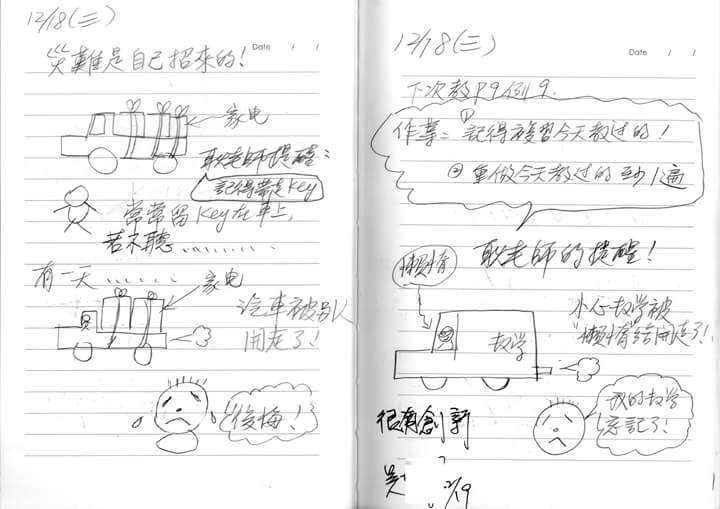 12/18(三)
災難是自己招來的!
Date / /
家电
耿老師提醒:
記得帶走key
常常留key在車上,
若不聽........
有一天......
家电
汽車被別人
開走了!
後悔!
12/18(三)
Date / /
下次教P9例9.
作業: ①記得複習今天教过的!
②重做今天教过的至少1遍
耿老師的提醒!
懶惰
数学
小心数学被
"懶惰"給開走了!
我的数学
忘記了!
很有創新
12/19